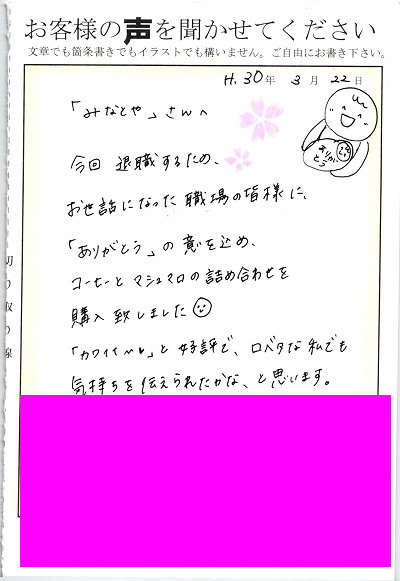 お客様の声を聞かせてください
文章でも箇条書きでもイラストでも構いません。ご自由にお書き下さい。
H.30年 3月 22日
「みなとや」さんへ
ありがとう
今回 退職するため、
お世話になった 職場の皆様に、
「ありがとう」の意を込め、
コーヒーと マシュマロの詰め合わせを
購入致しました
「カワイイ〜♥」と好評で、ロベタな私でも
気持ちを伝えられたかな、と思います。
切り取り線